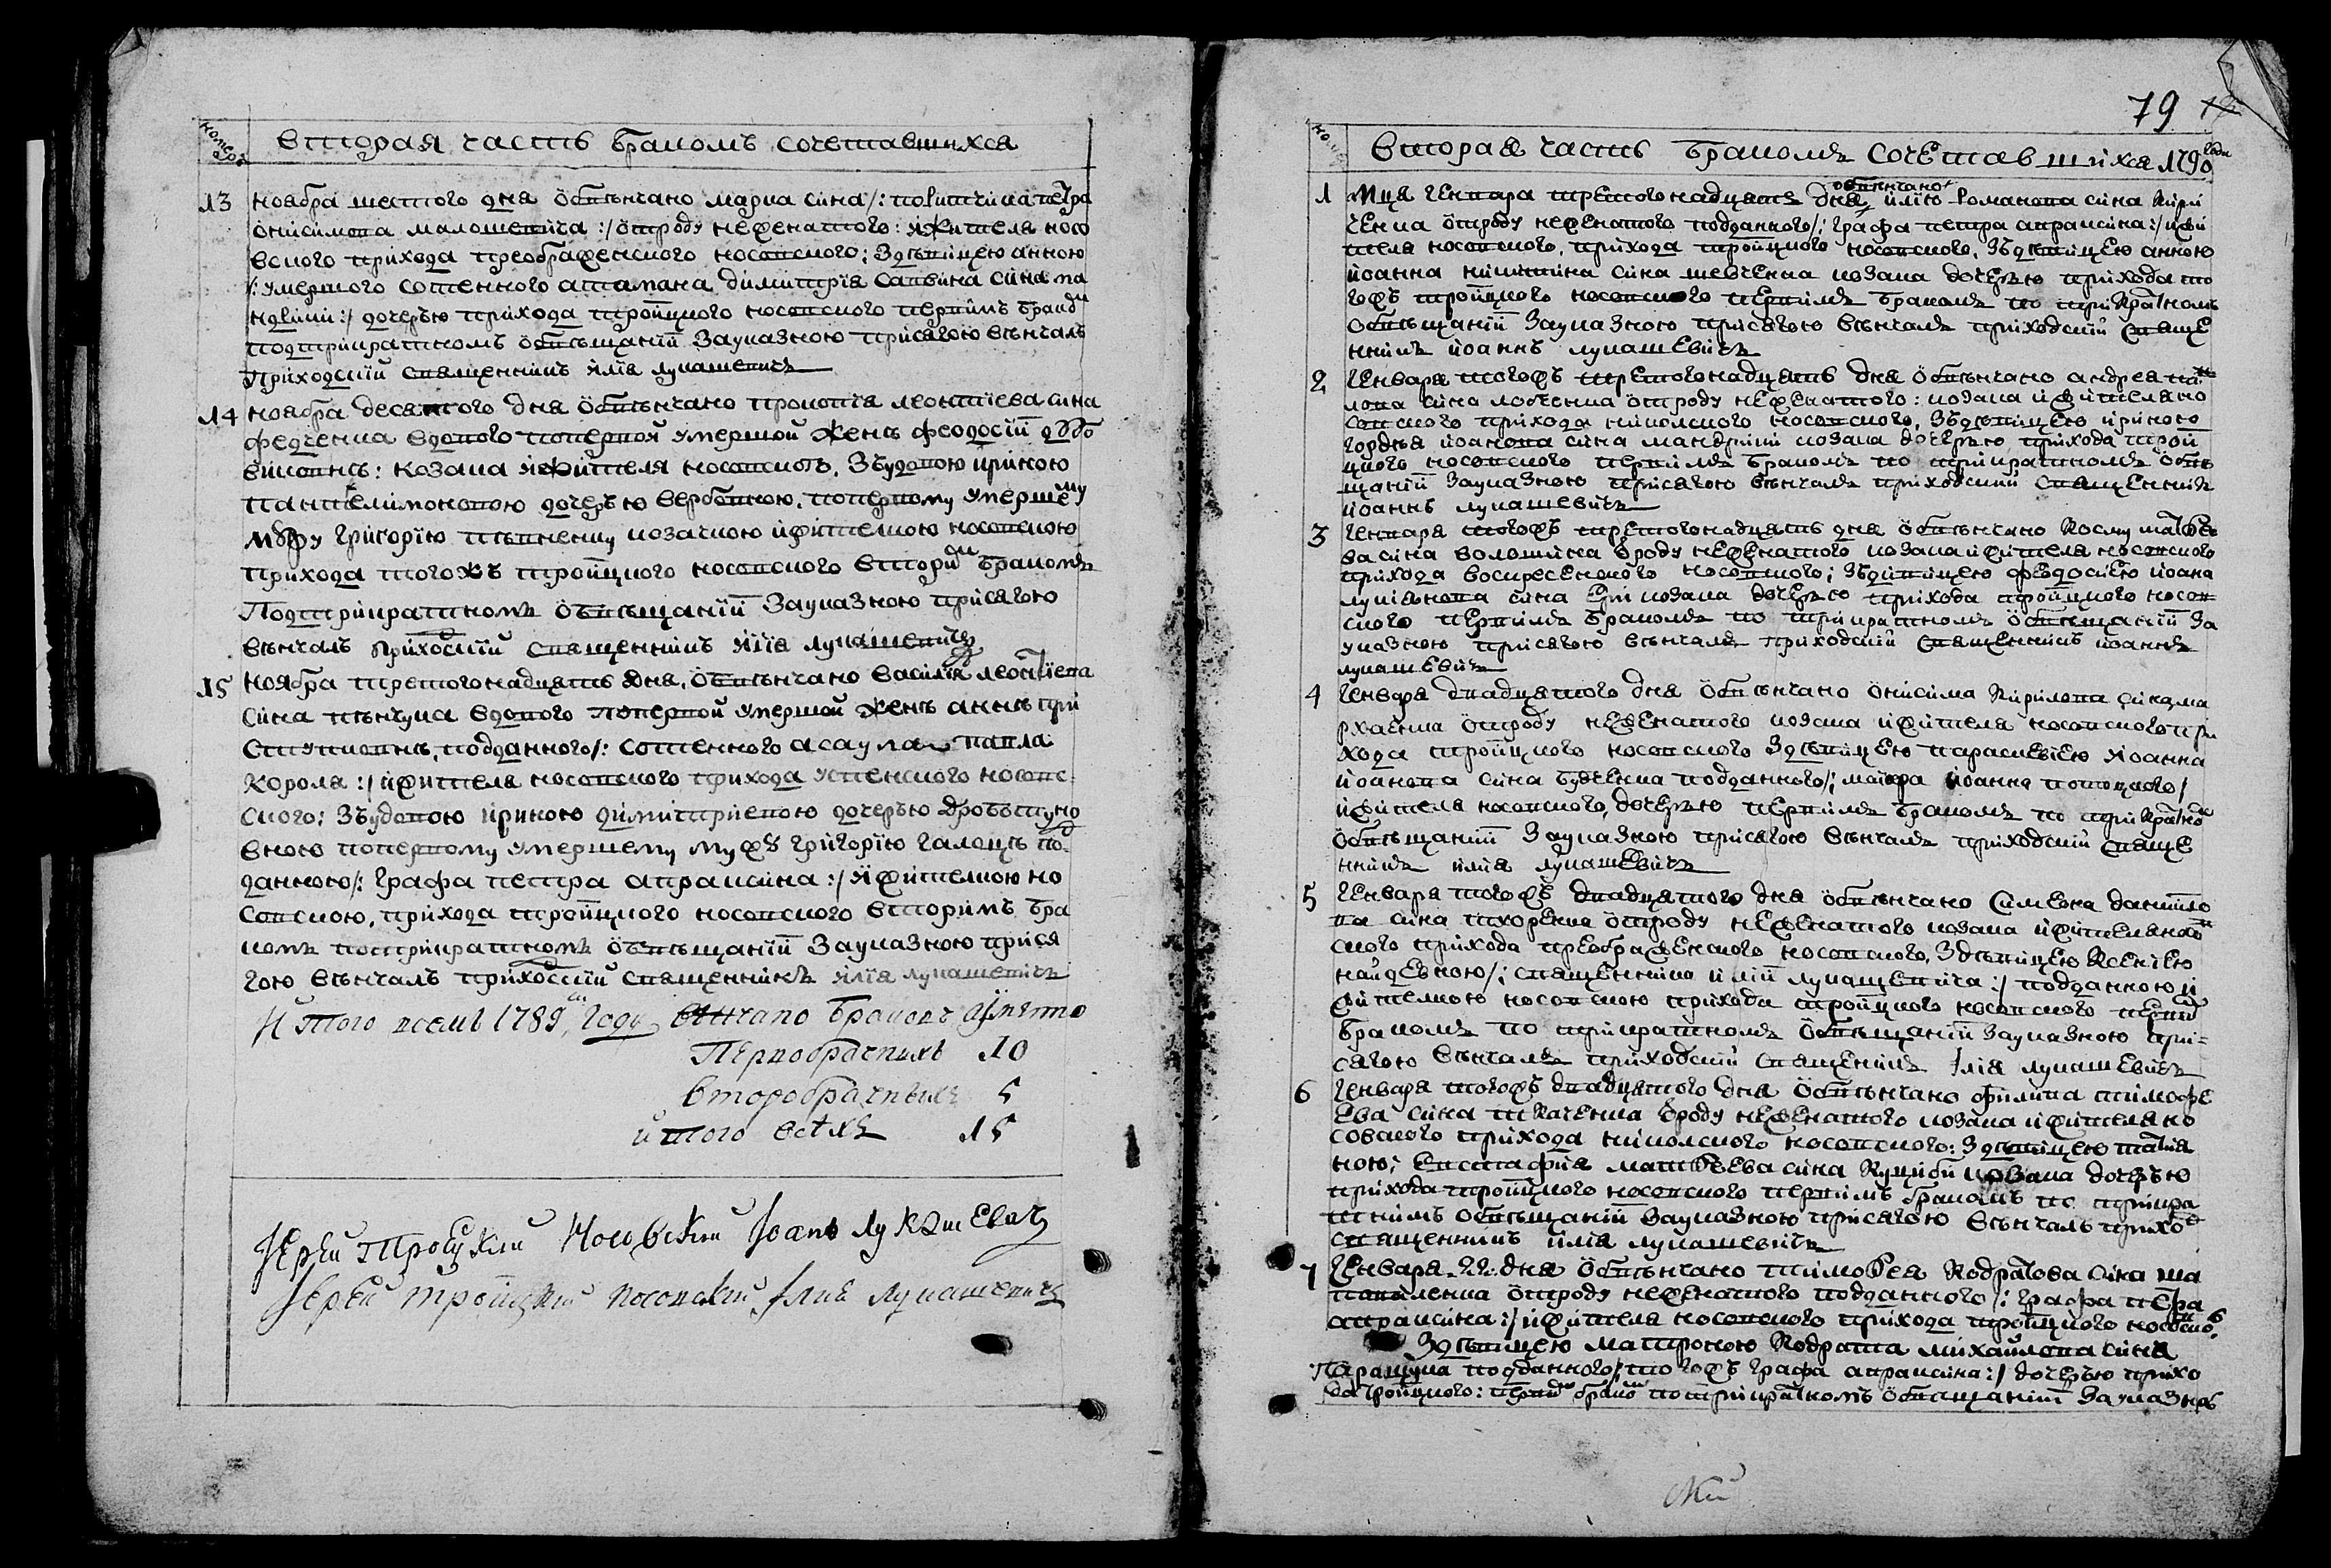 номеръ
вторая часть бракомъ сочетавшихся
13 ноября шестого дня обвѣнчано марка сина /: политчика петра
онисимова малошевича :/ отроду неженатого: яжителя носо
вского прихода преображенского носовского; Здѣвицею анною
/: умершого сотенного атамана димитрія савѣина сина па
:/ дочерью прихода тройцкого носовского первимъ
подприкратномъ обвѣщаніи Зауказною присягою вѣнчалъ
Приходскій священникъ илія лукашевичъ
14 ноября десятого дня обвѣнчано прокопія леонтіева сина
федченка вдового поперкой умершой женѣ феодосіи
: козака яжителя носовского, Зъудовою іриною
пантелимоновою дочерью вербовкою, поперкому умершему
мужу григорію козачкою ижителкою носовскою
прихода тогожъ тройцкого носовского втори бракомъ
Подприкратномъ обвѣщаніи Зауказною присягою
вѣнчалъ приходскій священникъ илія лукашевичъ
15 ноября третогонадцять дня, обвѣнчано василія леонтіева
сина вдового поперкой умершой женѣ аннѣ
подданного /: сотенного асаула павла
короля :/ ижителя носовского прихода успенского носовс-
ского; Зъудовою іриною димитріевою дочерью
вною поперкому умершему мужу григорію галенцѣ по
данною /: графа петра апраксина :/ яжителкою но
совскою, прихода тройцкого носовского вторимъ бра
комъ поприкратномъ обвѣщаніи Зауказною прися
гою вѣнчалъ приходскій священникъ илія лукашевичъ
Итого всемъ 1789 году вѣнчано браковъ
Первобрачнихъ 10
второбрачнихъ 5
итого всѣхъ 15
Іерей Тройцкій Носовскій Іоанъ Лукашевичъ
Іерей тройцкій носовскій Іліа Лукашевичъ
79
вторая часть бракомъ сочетавшихся 1790 году
1 мця генвара третогонадцять дня обвѣнчано илію романова сина кири
ченка отроду неженатого подданного /: графа петра апраксина :/ ижи
теля носовского, прихода тройцкого носовского, Зъдѣвицею анною
іоанна никитина сина шевченка козака дочерью прихода то
гожъ тройцкого носовского первимъ бракомъ по прикратномъ
обвѣщаніи Зауказною присягою вѣнчалъ приходскій свяще
нникъ іоаннъ лукашевичъ
2 генваря тогожъ третогонадцять дня обвѣнчано андрея па
лова сина лобченка отроду неженатого: козака ижителя но
совского прихода николского носовского, Зъдѣвицею іриною
гордѣя іоанова сина мандрики козака дочерью прихода трой
цкого носовского первимъ бракомъ по прикратномъ обвѣ
щаніи Зауказною присягою вѣнчалъ приходскій священникъ
іоаннъ лукашевичъ
3 генвара тогожъ третогонадцять дня обвѣнчано косму матвѣе
ва сина волошина ороду неженатого козака ижителя носовского
прихода воскресенского носовского; Зъдѣвицею феодосіею іоана
лукіянова сина козака дочерью прихода тройцкого носов
ского первимъ бракомъ по прикратномъ обвѣщаніи За
указною присягою вѣнчалъ приходскій священникъ іоаннъ
лукашевичъ
4 генваря двадцятого дня обвѣнчано онисима кирилова сина ма
рхаенка отроду неженатого козака ижителя носовского при
хода тройцкого носовского Здѣвицею параскевіею иоанна
иоанова сина будченка подданного /: маіора іоанна потоцкого /
ижителя носовского, дочерью первимъ бракомъ по прикратно
обвѣщаніи Зауказною присягою вѣнчалъ приходскій свяще
нникъ илія лукашевичъ
5 генваря тогожъ двадцятого дня обвѣнчано симеона даниіло
ва сина тхоренка отроду неженатого козака ижителя носов
ского прихода преображенского носовского, Здѣвицею ксеніею
найдевною /: священника иліи лукашевича :/ подданною и
жителкою носовскою прихода тройцкого носовского перви
бракомъ по прикратномъ обвѣщаніи Зауказною при-
сягою вѣнчалъ приходскій священникъ Ілія лукашевичъ
6 генваря тогожъ двадцятого дня обвѣнчано филипа тимофе
ева сина ткаченка ороду неженатого козака ижителя но
совского прихода николского носовского: Здѣвицею татія
ною; евстафія матѳѣева сина козака дочерью
прихода тройцкого носовского первимъ бракомъ по прикра
тнимъ обвѣщаніи Зауказною присягою вѣнчалъ прихо
священникъ илія лукашевичъ
7 генваря 22 дня обвѣнчано тимоѳея кодратова сина ша
поваленка отроду неженатого подданного /: графа петра
апраксина :/ ижителя носовского прихода тройцкого носовско
Здѣвицею матроною кодрата михайлова сина
подданного /: тогожъ графа апраксина :/ дочерью прихо
да тройцкого: перви брако поприкратномъ обвѣщаніи Зауказно